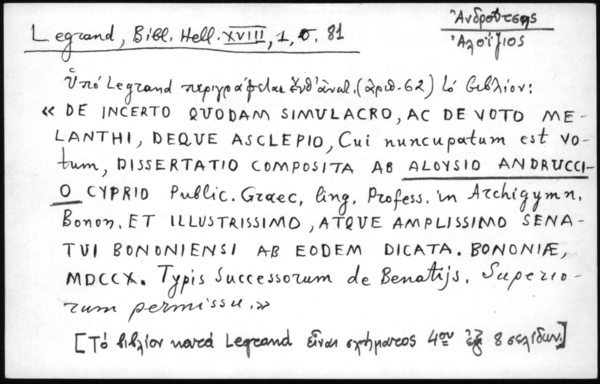 Ἀνδρούτσης
Ἀλοΐζιος
Legrand, Bibl. Hell. XVIII, 1, σ. 81
Ὑπό Legrand περιγράφεται ἐνθ᾽ ἀνωτ. (ἀριθ. 62) τό βιβλίον:
« DE INCERTO QUODAM SIMULACRO, AC DE VOTO ME-
LANTHI, DEQUE ASCLEPIO, Cui nuncupatum est vo-
tum, DISSERTATIO COMPOSITA AB ALOYSIO ANDRUCCI-
O CYPRIO Public. Graec. ling. Profess. in Archigymn.
Bonon. ET ILLUSTRISSIMO, ATQUE AMPLISSIMO SENA-
TVI BONONIENSI AB EODEM DICATA. BONONIÆ,
MDCCX. Typis Successorum de Benatijs. Superio-
rum permissu.»
[Τό βιβλίον κατά Legrand εἶναι σχήματος 4ου ἐξ 8 σελίδων.]